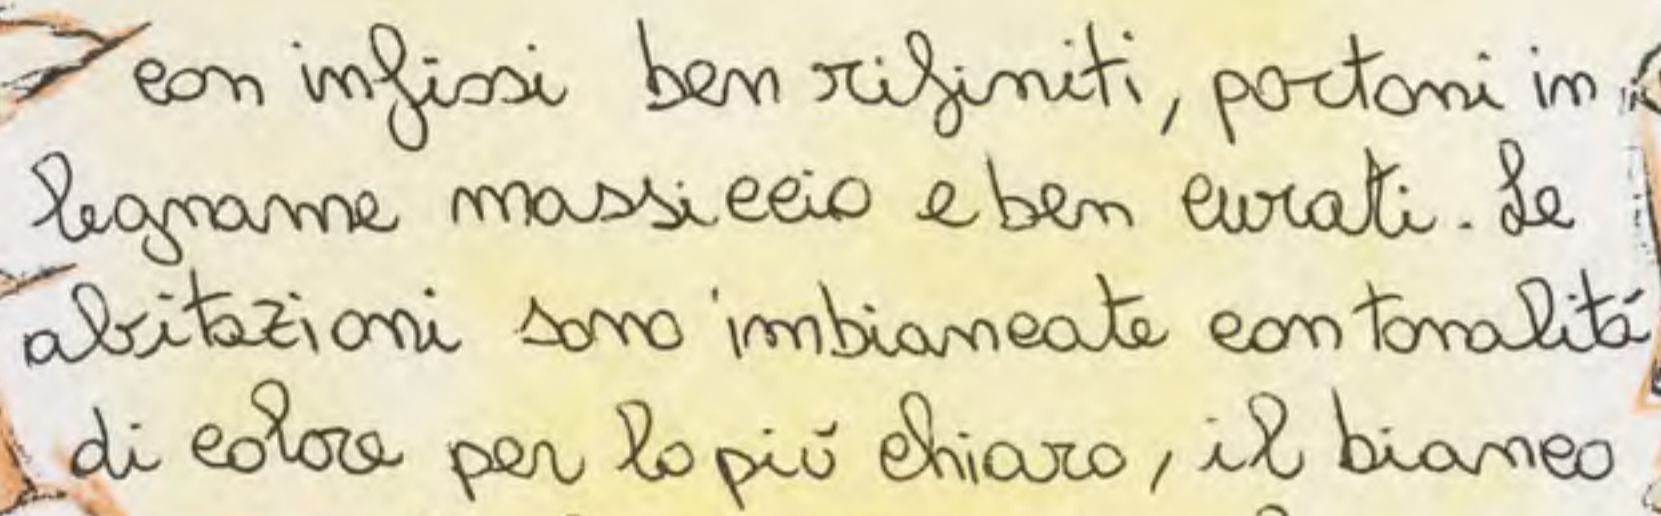 con infissi ben rifiniti, portoni in
legname massiccio e ben curati. Le
abitazioni sono imbiancate con tonalità
di colore per lo più chiaro, il bianco